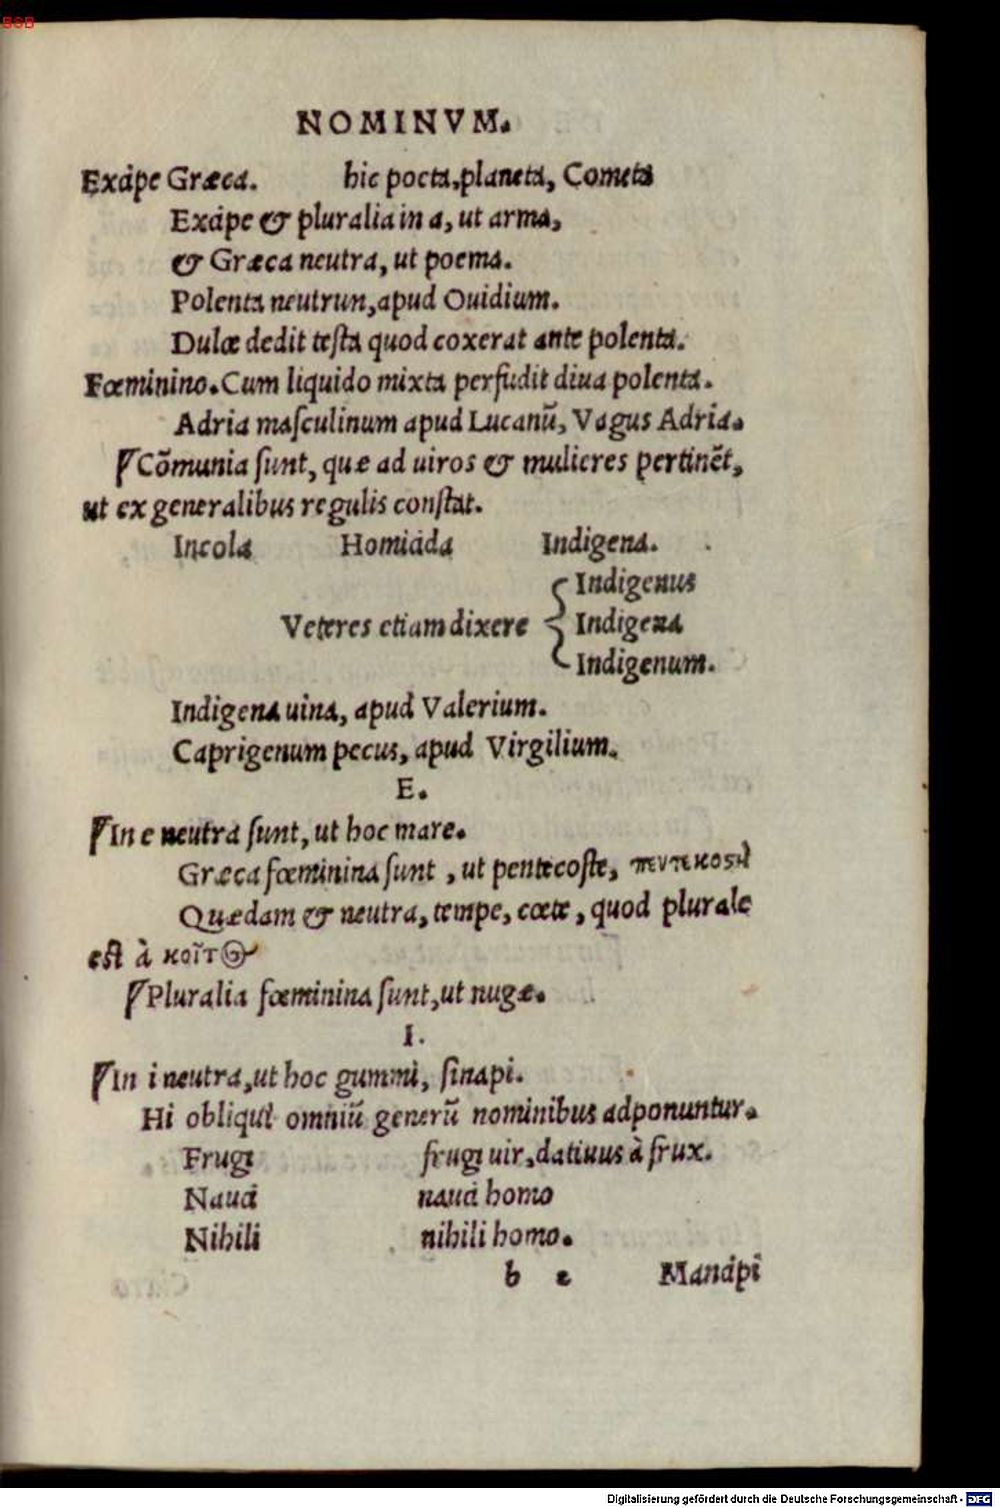 BSB
NOMINVM.
Excipe Græca. hic poeta, planeta, Cometa
Excipe & pluralia in a, ut arma,
& Græca neutra, ut poema.
Polenta neutrun, apud Ouidium.
Dulce dedit testa quod coxerat ante polenta.
Fœminino. Cum liquido mixta perfudit diua polenta.
Adria masculinum apud Lucanū, Vagus Adria.
¶Cōmunia sunt, quæ ad uiros & mulieres pertinēt,
ut ex generalibus regulis constat.
Incola Homicida Indigena.
Indigenus
Veteres etiam dixere Indigena
Indigenum.
Indigena uina, apud Valerium.
Caprigenum pecus, apud Virgilium.
E.
¶In e neutra sunt, ut hoc mare.
Græca fœminina sunt, ut pentecoste, πεντεκοϛὴ
Quædam & neutra, tempe, cœte, quod plurale
est à κοῖτος
¶Pluralia fœminina sunt, ut nugæ.
I.
¶In i neutra, ut hoc gummi, sinapi.
Hi obliqui omniū generū nominibus adponuntur.
Frugi frugi uir, datiuus à frux.
Nauci nauci homo
Nihili nihili homo.
b 2 Mancipi
Digitalisierung gefördert durch die Deutsche Forschungsgemeinschaft - DFG